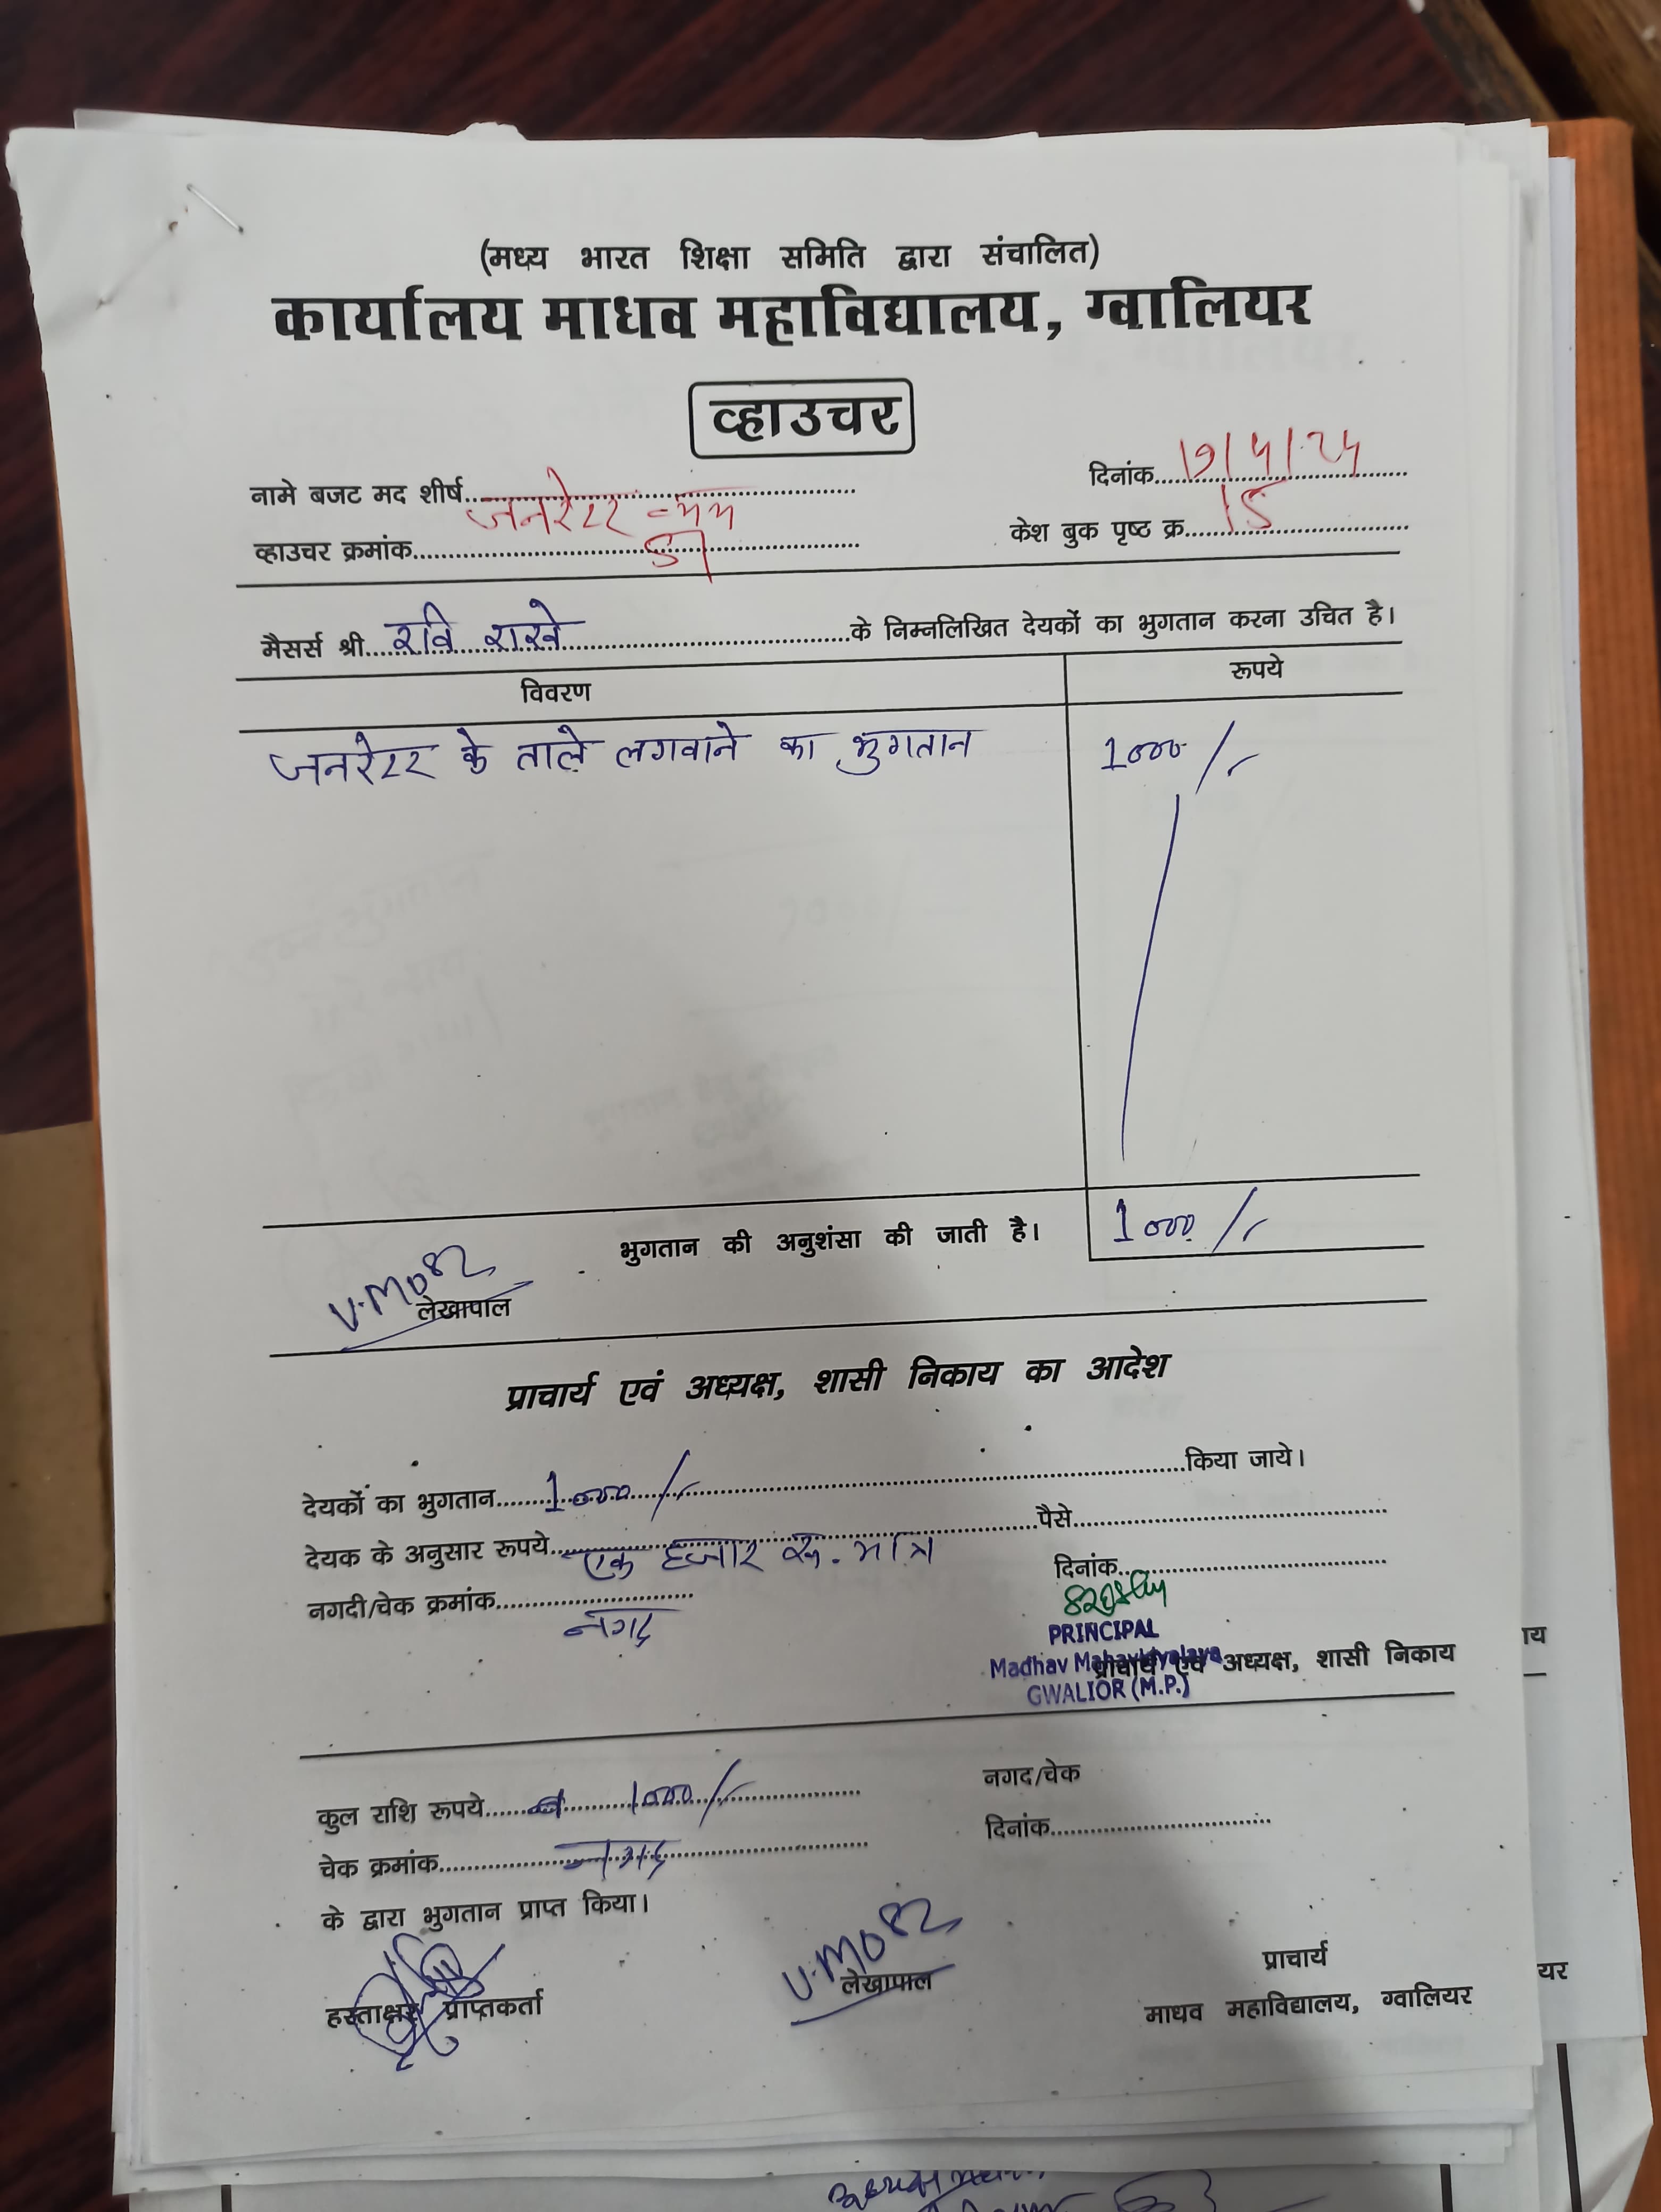 (मध्य भारत शिक्षा समिति द्वारा संचालित)
कार्यालय माधव महाविद्यालय, ग्वालियर
व्हाउचर
नामे बजट मद शीर्ष जनरेटर - मम
दिनांक
व्हाउचर क्रमांक
केश बुक पृष्ठ क्र. 15
मैसर्स श्री रवि राखे के निम्नलिखित देयकों का भुगतान करना उचित है।
विवरण रूपये
जनरेटर के ताले लगवाने का भुगतान 1000/-
भुगतान की अनुशंसा की जाती है। 1000/-
लेखापाल
प्राचार्य एवं अध्यक्ष, शासी निकाय का आदेश
देयकों का भुगतान 1000/- किया जाये।
देयक के अनुसार रूपये एक हजार रू. मात्र पैसे
नगदी/चेक क्रमांक नगद
दिनांक
PRINCIPAL
Madhav Mahavidyalaya
GWALIOR (M.P.)
प्राचार्य एवं अध्यक्ष, शासी निकाय
कुल राशि रूपये 1000/- नगद/चेक
चेक क्रमांक नगद दिनांक
के द्वारा भुगतान प्राप्त किया।
हस्ताक्षर प्राप्तकर्ता
लेखापाल
प्राचार्य
माधव महाविद्यालय, ग्वालियर